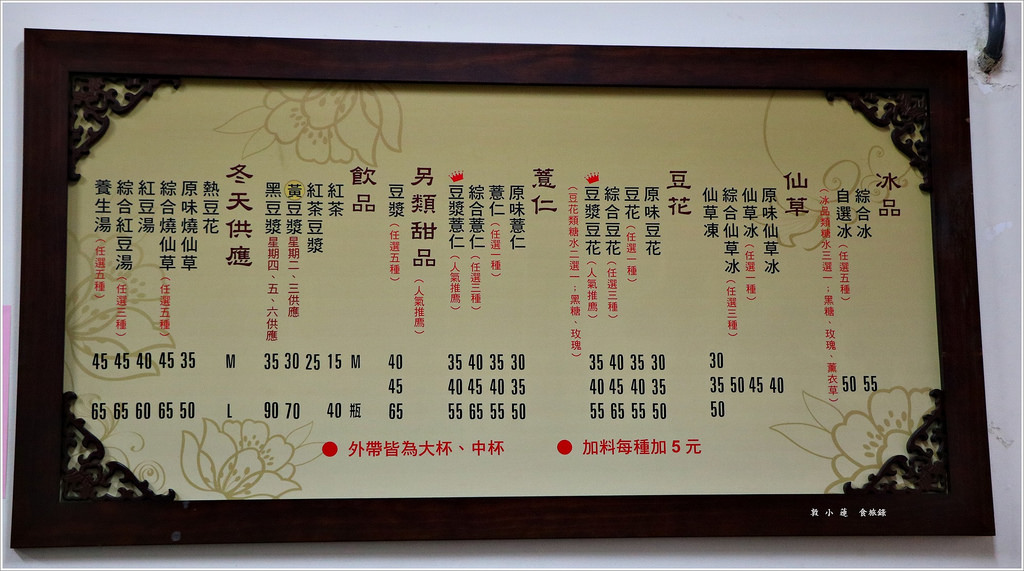 冰品
綜合冰 55
自選冰(任選五種) 50
(冰品類糖水三選一；黑糖、玫瑰、薰衣草)
仙草
原味仙草冰 40
仙草冰(任選一種) 45
綜合仙草冰(任選三種) 50
仙草凍 30 35 50
豆花
原味豆花 30 35 50
豆花(任選一種) 35 40 55
綜合豆花(任選三種) 40 45 65
豆漿豆花(人氣推鷹) 35 40 55
(豆花類糖水二選一；黑糖、玫瑰)
薏仁
原味薏仁 30 35 50
薏仁(任選一種) 35 40 55
綜合薏仁(任選三種) 40 45 65
豆漿薏仁(人氣推鷹) 35 40 55
另類甜品(人氣推鷹)
豆漿(任選五種) 40 45 65
飲品 M 瓶
紅茶 15 40
紅茶豆漿 25
黃豆漿星期二、三供應 30 70
黑豆漿星期四、五、六供應 35 90
冬天供應 M L
熱豆花
原味燒仙草 35 50
綜合燒仙草(任選五種) 45 65
紅豆湯 40 60
綜合紅豆湯(任選三種) 45 65
養生湯(任選五種) 45 65
● 外帶皆為大杯、中杯
● 加料每種加 5 元
敦小蓮 食旅錄